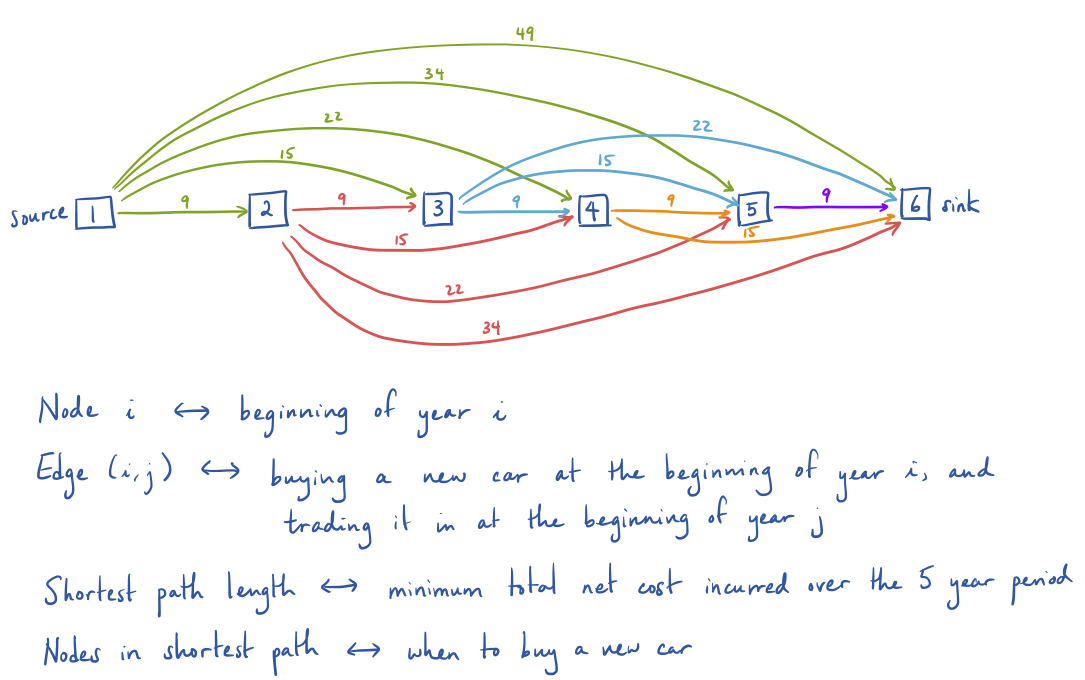 49
34
22
15
22
15
source 1 9 2 9 3 9 4 9 5 9 6 sink
15
15
22
34
Node i ↔ beginning of year i
Edge (i,j) ↔ buying a new car at the beginning of year i, and
trading it in at the beginning of year j
Shortest path length ↔ minimum total net cost incurred over the 5 year period
Nodes in shortest path ↔ when to buy a new car